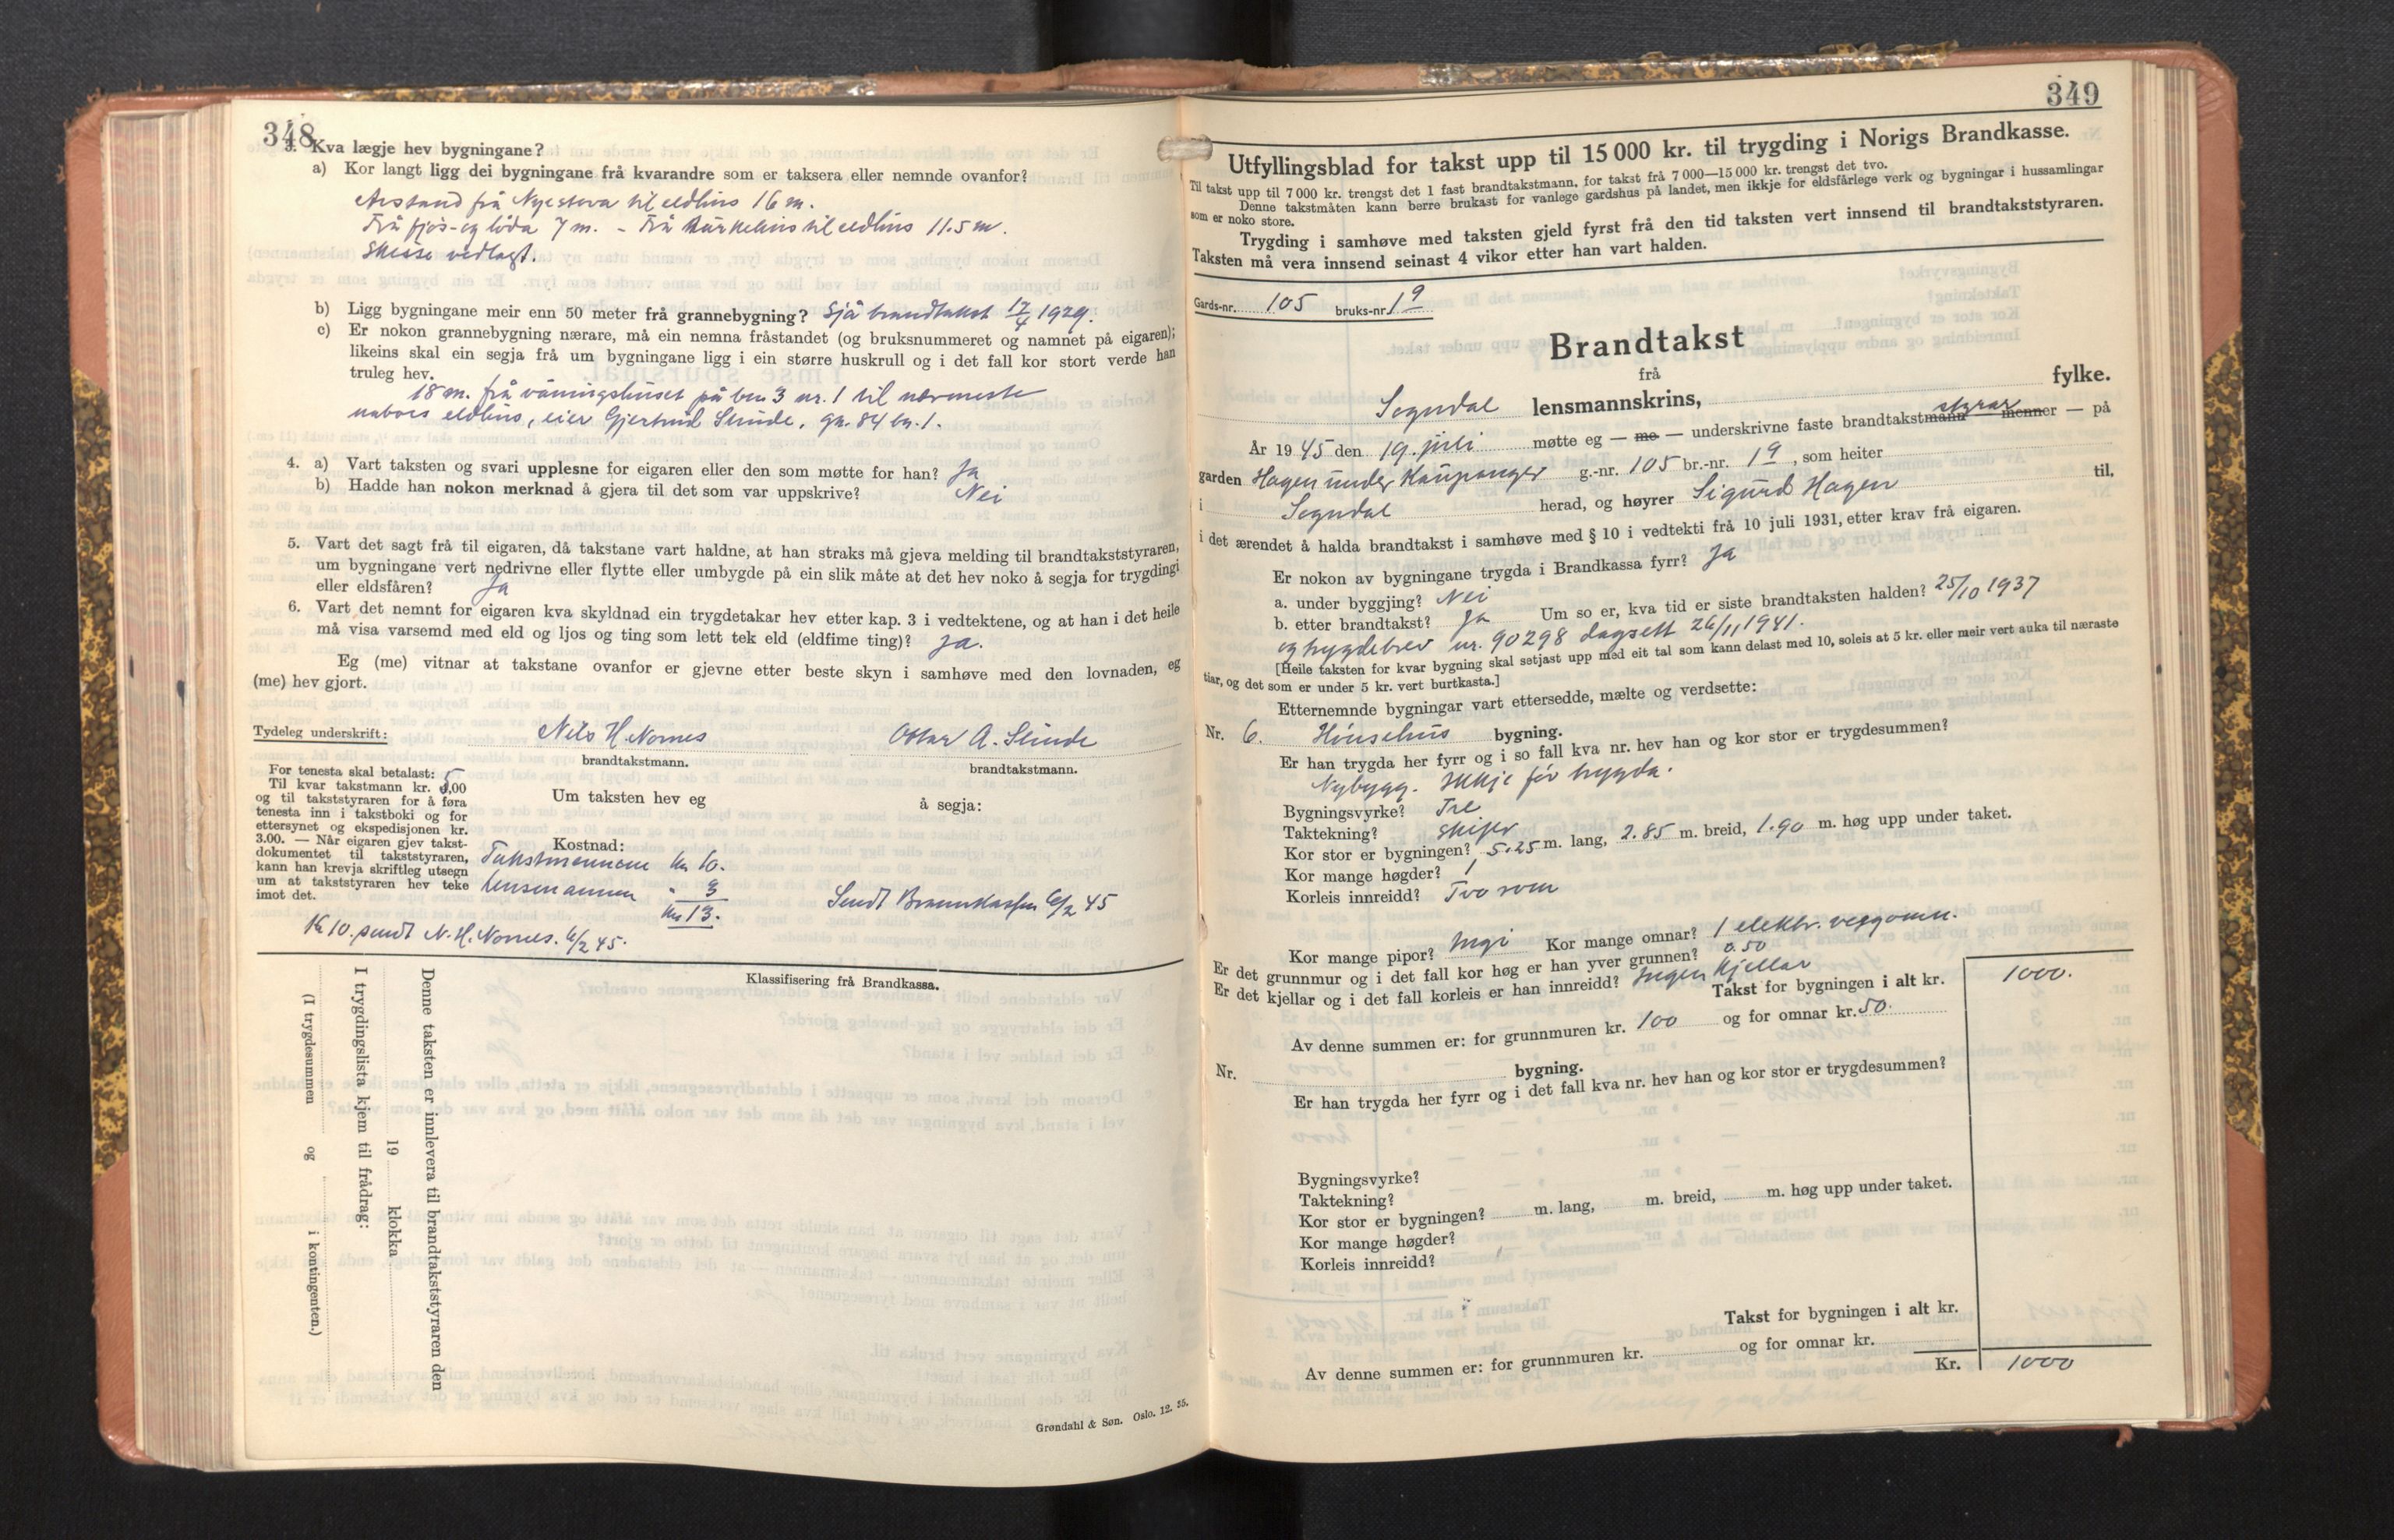 348
3. Kva lægje hev bygningane?
a) Kor langt ligg dei bygningane frå kvarandre som er taksera eller nemnde ovanfor?
Avstand frå Nyestova til eldhus 16 m.
Frå fjos- og löda 7 m. - Frå turkehus til eldhus 11.5 m.
Skisse vedlagt.
b) Ligg bygningane meir enn 50 meter frå grannebygning? Sjå brandtakst 17/4 1929.
c) Er nokon grannebygning nærare, må ein nemna fråstandet (og bruksnummeret og namnet på eigaren);
likeins skal ein segja frå um bygningane ligg i ein større huskrull og i det fall kor stort verde han
truleg hev.
18 m. frå våningshuset på bnr. 3 nr. 1 til nærmeste
nabois eldhus, eier Gjertrud Slinde, gn. 84 bn. 1.
4. a) Vart taksten og svari upplesne for eigaren eller den som møtte for han? Ja
b) Hadde han nokon merknad å gjera til det som var uppskrive? Nei
5. Vart det sagt frå til eigaren, då takstane vart haldne, at han straks må gjeva melding til brandtakststyraren,
um bygningane vert nedrivne eller flytte eller umbygde på ein slik måte at det hev noko å segja for trygdingi
eller eldsfåren? Ja
6. Vart det nemnt for eigaren kva skyldnad ein trygdetakar hev etter kap. 3 i vedtektene, og at han i det heile
må visa varsemd med eld og ljos og ting som lett tek eld (eldfime ting)? Ja.
Eg (me) vitnar at takstane ovanfor er gjevne etter beste skyn i samhøve med den lovnaden, eg
(me) hev gjort.
Tydeleg underskrift: Nils H. Nornes Oskar A. Slinde
brandtakstmann. brandtakstmann.
For tenesta skal betalast:
Til kvar takstmann kr. 5,00
og til takststyraren for å føra
tenesta inn i takstboki og for
ettersynet og ekspedisjonen kr.
3.00. — Når eigaren gjev takst-
dokumentet til takststyraren,
kann han krevja skriftleg utsegn
um at takststyraren hev teke
imot det.
Um taksten hev eg å segja:
Kostnad:
Takstmennene kr 10.
Lensmannen " 3
kr 13.
Sendt Brannkassen 6/2 45
Kr 10. sendt N. H. Nornes. 6/2 45.
Klassifisering frå Brandkassa.
Denne taksten er innlevera til brandtakststyraren den
19 klokka
I trygdingslista kjem til frådrag:
(I trygdesummen og i kontingenten.)
Grøndahl & Søn. Oslo. 12. 35.
349
Utfyllingsblad for takst upp til 15 000 kr. til trygding i Norigs Brandkasse.
Til takst upp til 7 000 kr. trengst det 1 fast brandtakstmann, for takst frå 7 000—15 000 kr. trengst det tvo.
Denne takstmåten kann berre brukast for vanlege gardshus på landet, men ikkje for eldsfårlege verk og bygningar i hussamlingar
som er noko store.
Trygding i samhøve med taksten gjeld fyrst frå den tid taksten vert innsend til brandtakststyraren.
Taksten må vera innsend seinast 4 vikor etter han vart halden.
Gards-nr. 105 bruks-nr. 19
Brandtakst
frå
fylke.
Sogndal lensmannskrins,
År 1945 den 19. juli møtte eg — me — underskrivne faste brandtakstmann menner styrar — på
garden Hagen under Kaupanger g.-nr. 105 br.-nr. 19, som heiter
i Sogndal herad, og høyrer Sigurd Hagen til,
i det ærendet å halda brandtakst i samhøve med § 10 i vedtekti frå 10 juli 1931, etter krav frå eigaren.
Er nokon av bygningane trygda i Brandkassa fyrr? Ja
a. under byggjing? Nei
b. etter brandtakst? Ja Um so er, kva tid er siste brandtaksten halden? 25/10 1937
og trygdebrev nr. 90298 dagsett 26/11 1941.
[Heile taksten for kvar bygning skal setjast upp med eit tal som kann delast med 10, soleis at 5 kr. eller meir vert auka til næraste
tiar, og det som er under 5 kr. vert burtkasta.]
Etternemnde bygningar vart ettersedde, mælte og verdsette:
Nr. 6. Hönsehus bygning.
Er han trygda her fyrr og i so fall kva nr. hev han og kor stor er trygdesummen?
Nybygg. Ikkje før trygda.
Bygningsvyrke? Tre
Taktekning? Skifer
Kor stor er bygningen? 5.25 m. lang, 2.85 m. breid, 1.90 m. høg upp under taket.
Kor mange høgder? 1
Korleis innreidd? Tvo rom
Kor mange pipor? Ingi Kor mange omnar? 1 elektr. veggomn.
Er det grunnmur og i det fall kor høg er han yver grunnen? 0.50
Er det kjellar og i det fall korleis er han innreidd? Ingen kjellar
Takst for bygningen i alt kr. 1000.
Av denne summen er: for grunnmuren kr. 100 og for omnar kr. 50.
Nr. bygning.
Er han trygda her fyrr og i det fall kva nr. hev han og kor stor er trygdesummen?
Bygningsvyrke?
Taktekning?
Kor stor er bygningen? m. lang, m. breid, m. høg upp under taket.
Kor mange høgder?
Korleis innreidd?
Takst for bygningen i alt kr.
Av denne summen er: for grunnmuren kr. og for omnar kr.
Kr. 1000